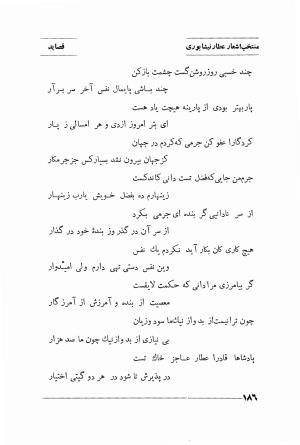 منتخب اشعار عطار نیشابوری
قصاید
چند خسبی روز روشن گشت چشمت باز کن
چند باشی پایمال نفس آخر سر برآر
پار بهتر بودی از پارینه هیچت یاد هست
ای بتر امروز ازدی و هر امسالی ز پار
کردگارا عفو کن جرمی که کردم در جهان
کز جهان بیرون نشد بسیار کس جز جرمکار
جرم من جایی که فضل تست دانی کاندکست
زینهارم ده بفضل خویش یارب زینهار
از سر نادانیی گر بنده ای جرمی بکرد
از سر آن در گذر وز بندهٔ خود در گذار
هیچ کاری کان بکار آید نکردم یك نفس
وین نفس دستی تهی دارم ولی امیّدوار
گر بیامرزی مرا دانی که حکمت لایقست
معصیت از بنده و آمرزش از آمرزگار
چون ترا نیست از بد و از نیك ما سود وزیان
بی نیازی از بد وز نیك چون ما صد هزار
پادشاها قادرا عطار عاجز خاك تست
در پذیرش تا شود در هر دو گیتی اختیار
۱۸۶